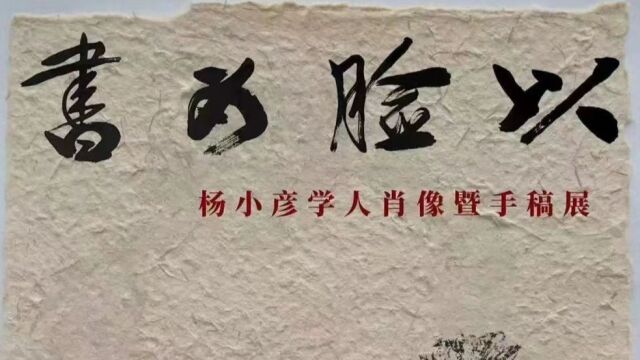 以脸为書
杨小彦学人肖像暨手稿展